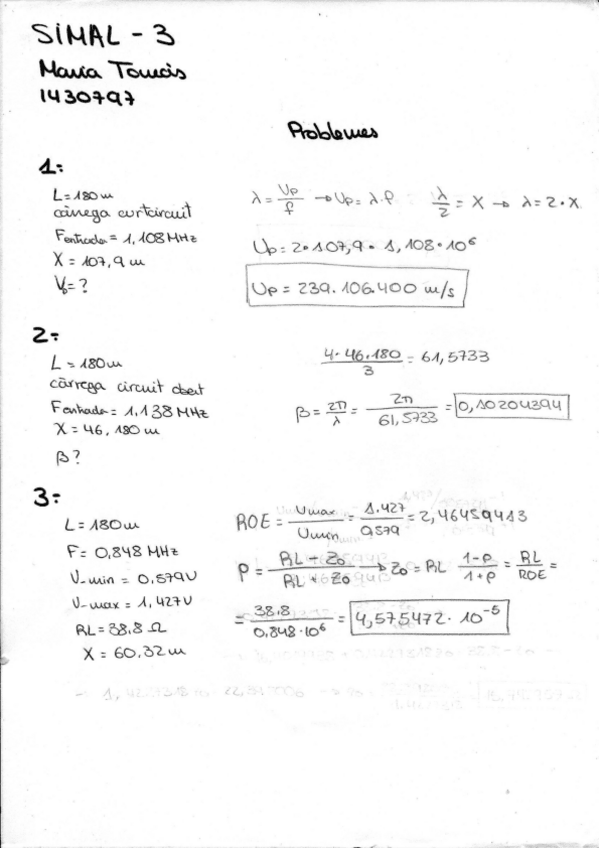 SIMAL - 3
Maria Tomàs
1430797
Problemes
1:
L = 180 m
càrrega curtcircuit
Fentrada = 1,108 MHz
X = 107,9 m
Vp = ?
λ = Up/f → Up = λ·f   λ/2 = X → λ = 2·X
Up = 2·107,9·1,108·10⁶
Up = 239.106.400 m/s
2:
L = 180 m
càrrega circuit obert
Fentrada = 1,138 MHz
X = 46,180 m
β?
4·46.180/3 = 61,5733
β = 2π/λ = 2π/61,5733 = 0,10204394
3:
L = 180 m
F = 0,848 MHz
V-min = 0,579V
V-max = 1,427V
RL = 38,8 Ω
X = 60,32 m
ROE = Umax/Umin = 1.427/0,579 = 2,46459413
ρ = RL - Zo/RL + Zo → Zo = RL 1-ρ/1+ρ = RL/ROE =
= 38.8/0,848·10⁶ = 4,575472·10⁻⁵